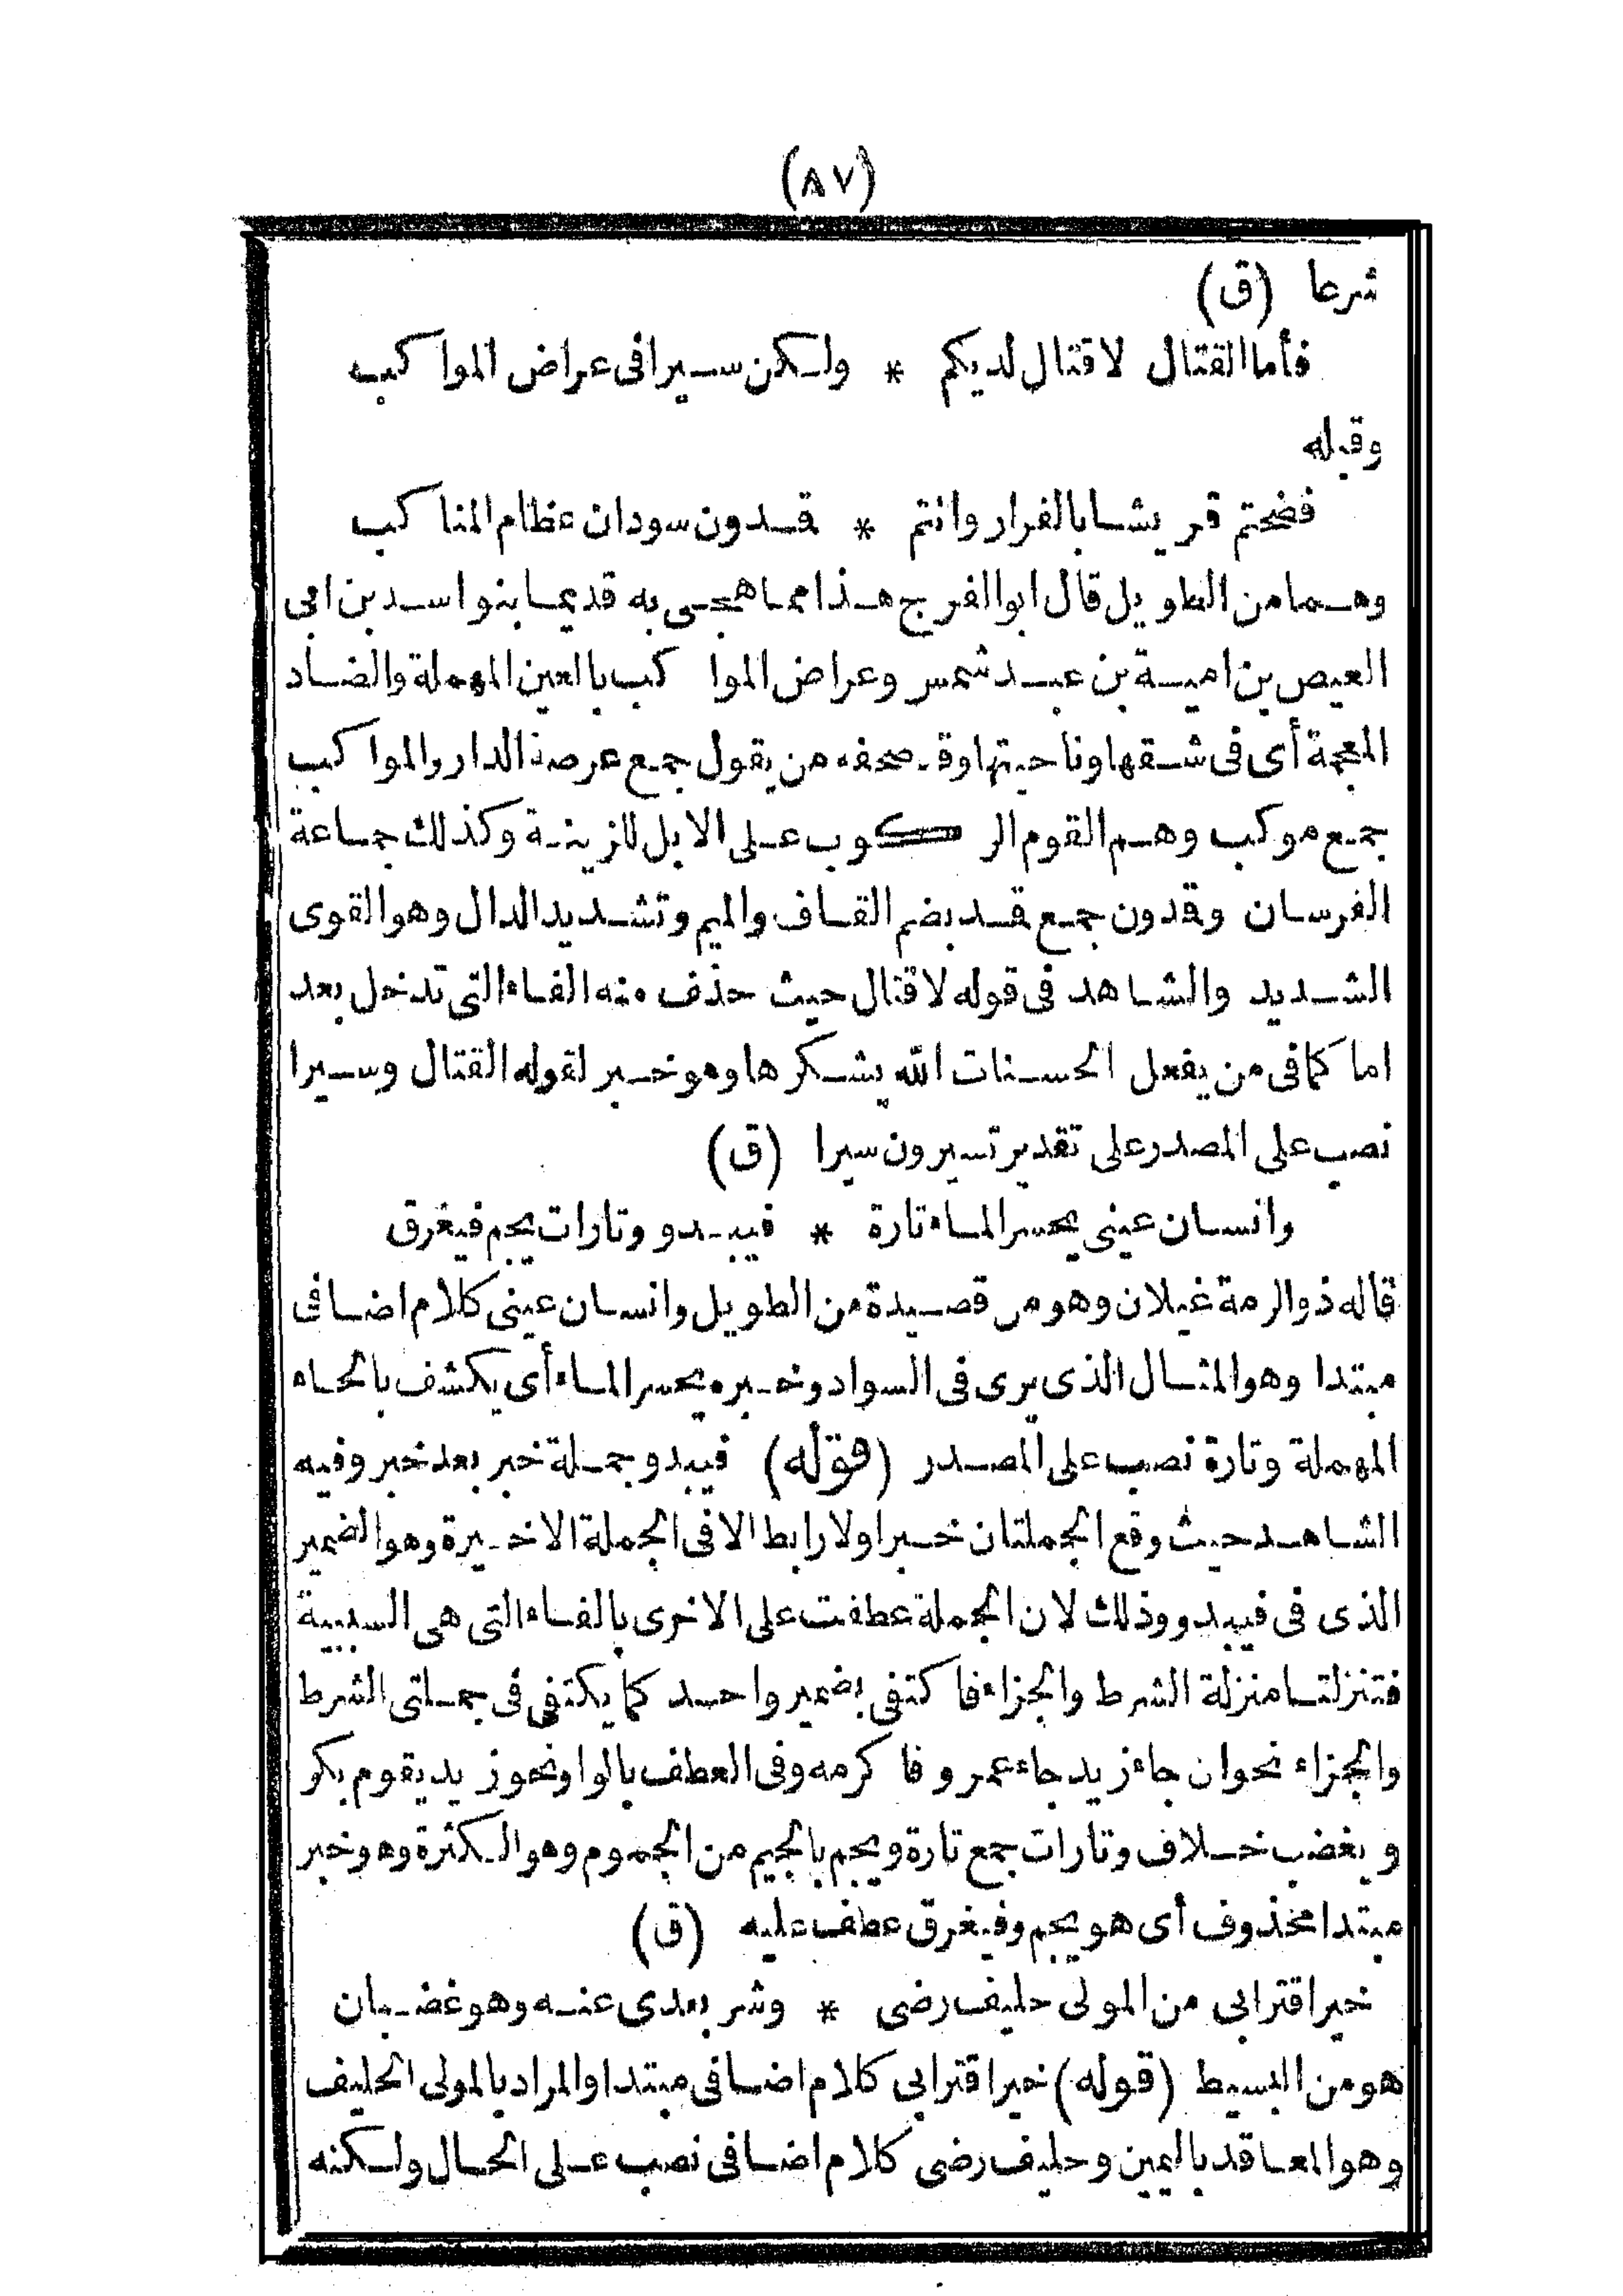 (٨٧)
شرعا (ق)
فأما القتال لا قتال لديكم * ولكن سيرا فى عراض المواكب
وقبله
فضحتم قريشا بالفرار وانتم * قمدون سودان عظام المناكب
وهما من الطويل قال ابو الفرج هذا مما هجى به قديما بنو اسد بن ابى
العيص بن امية بن عبد شمس وعراض المواكب بالعين المهملة والضاد
المعجمة أى فى شقها وناحيتها وقد صحفه من يقول جمع عرصة الدار والمواكب
جمع موكب وهم القوم الركوب على الابل للزينة وكذلك جماعة
الفرسان وقمدون جمع قمد بضم القاف والميم وتشديد الدال وهو القوى
الشديد والشاهد فى قوله لا قتال حيث حذف منه الفاء التى تدخل بعد
اما كما فى من يفعل الحسنات الله يشكرها وهو خبر لقوله القتال وسيرا
نصب على المصدر على تقدير تسيرون سيرا (ق)
وانسان عينى يحسر الماء تارة * فيبدو وتارات يجم فيغرق
قاله ذو الرمة غيلان وهو من قصيدة من الطويل وانسان عينى كلام اضافى
مبتدا وهو المثال الذى يرى فى السواد وخبره يحسر الماء أى يكشف بالحاء
المهملة وتارة نصب على المصدر (قوله) فيبدو جملة خبر بعد خبر وفيه
الشاهد حيث وقع الجملتان خبرا ولا رابط الا فى الجملة الاخيرة وهو الضمير
الذى فى فيبدو وذلك لان الجملة عطفت على الاخرى بالفاء التى هى السببية
فتنزلتا منزلة الشرط والجزاء فاكتفى بضمير واحد كما يكتفى فى جملتى الشرط
والجزاء نحو ان جاء زيد جاء عمرو فاكرمه وفى العطف بالواو نحو زيد يقوم بكر
ويغضب خلاف وتارات جمع تارة ويجم بالجيم من الجموم وهو الكثرة وهو خبر
مبتدا محذوف أى هو يجم وفيغرق عطف عليه (ق)
خير اقترابى من المولى حليف رضى * وشر بعدى عنه وهو غضبان
هو من البسيط (قوله) خير اقترابى كلام اضافى مبتدا والمراد بالمولى الحليف
وهو المعاقد باليمين وحليف رضى كلام اضافى نصب على الحال ولكنه